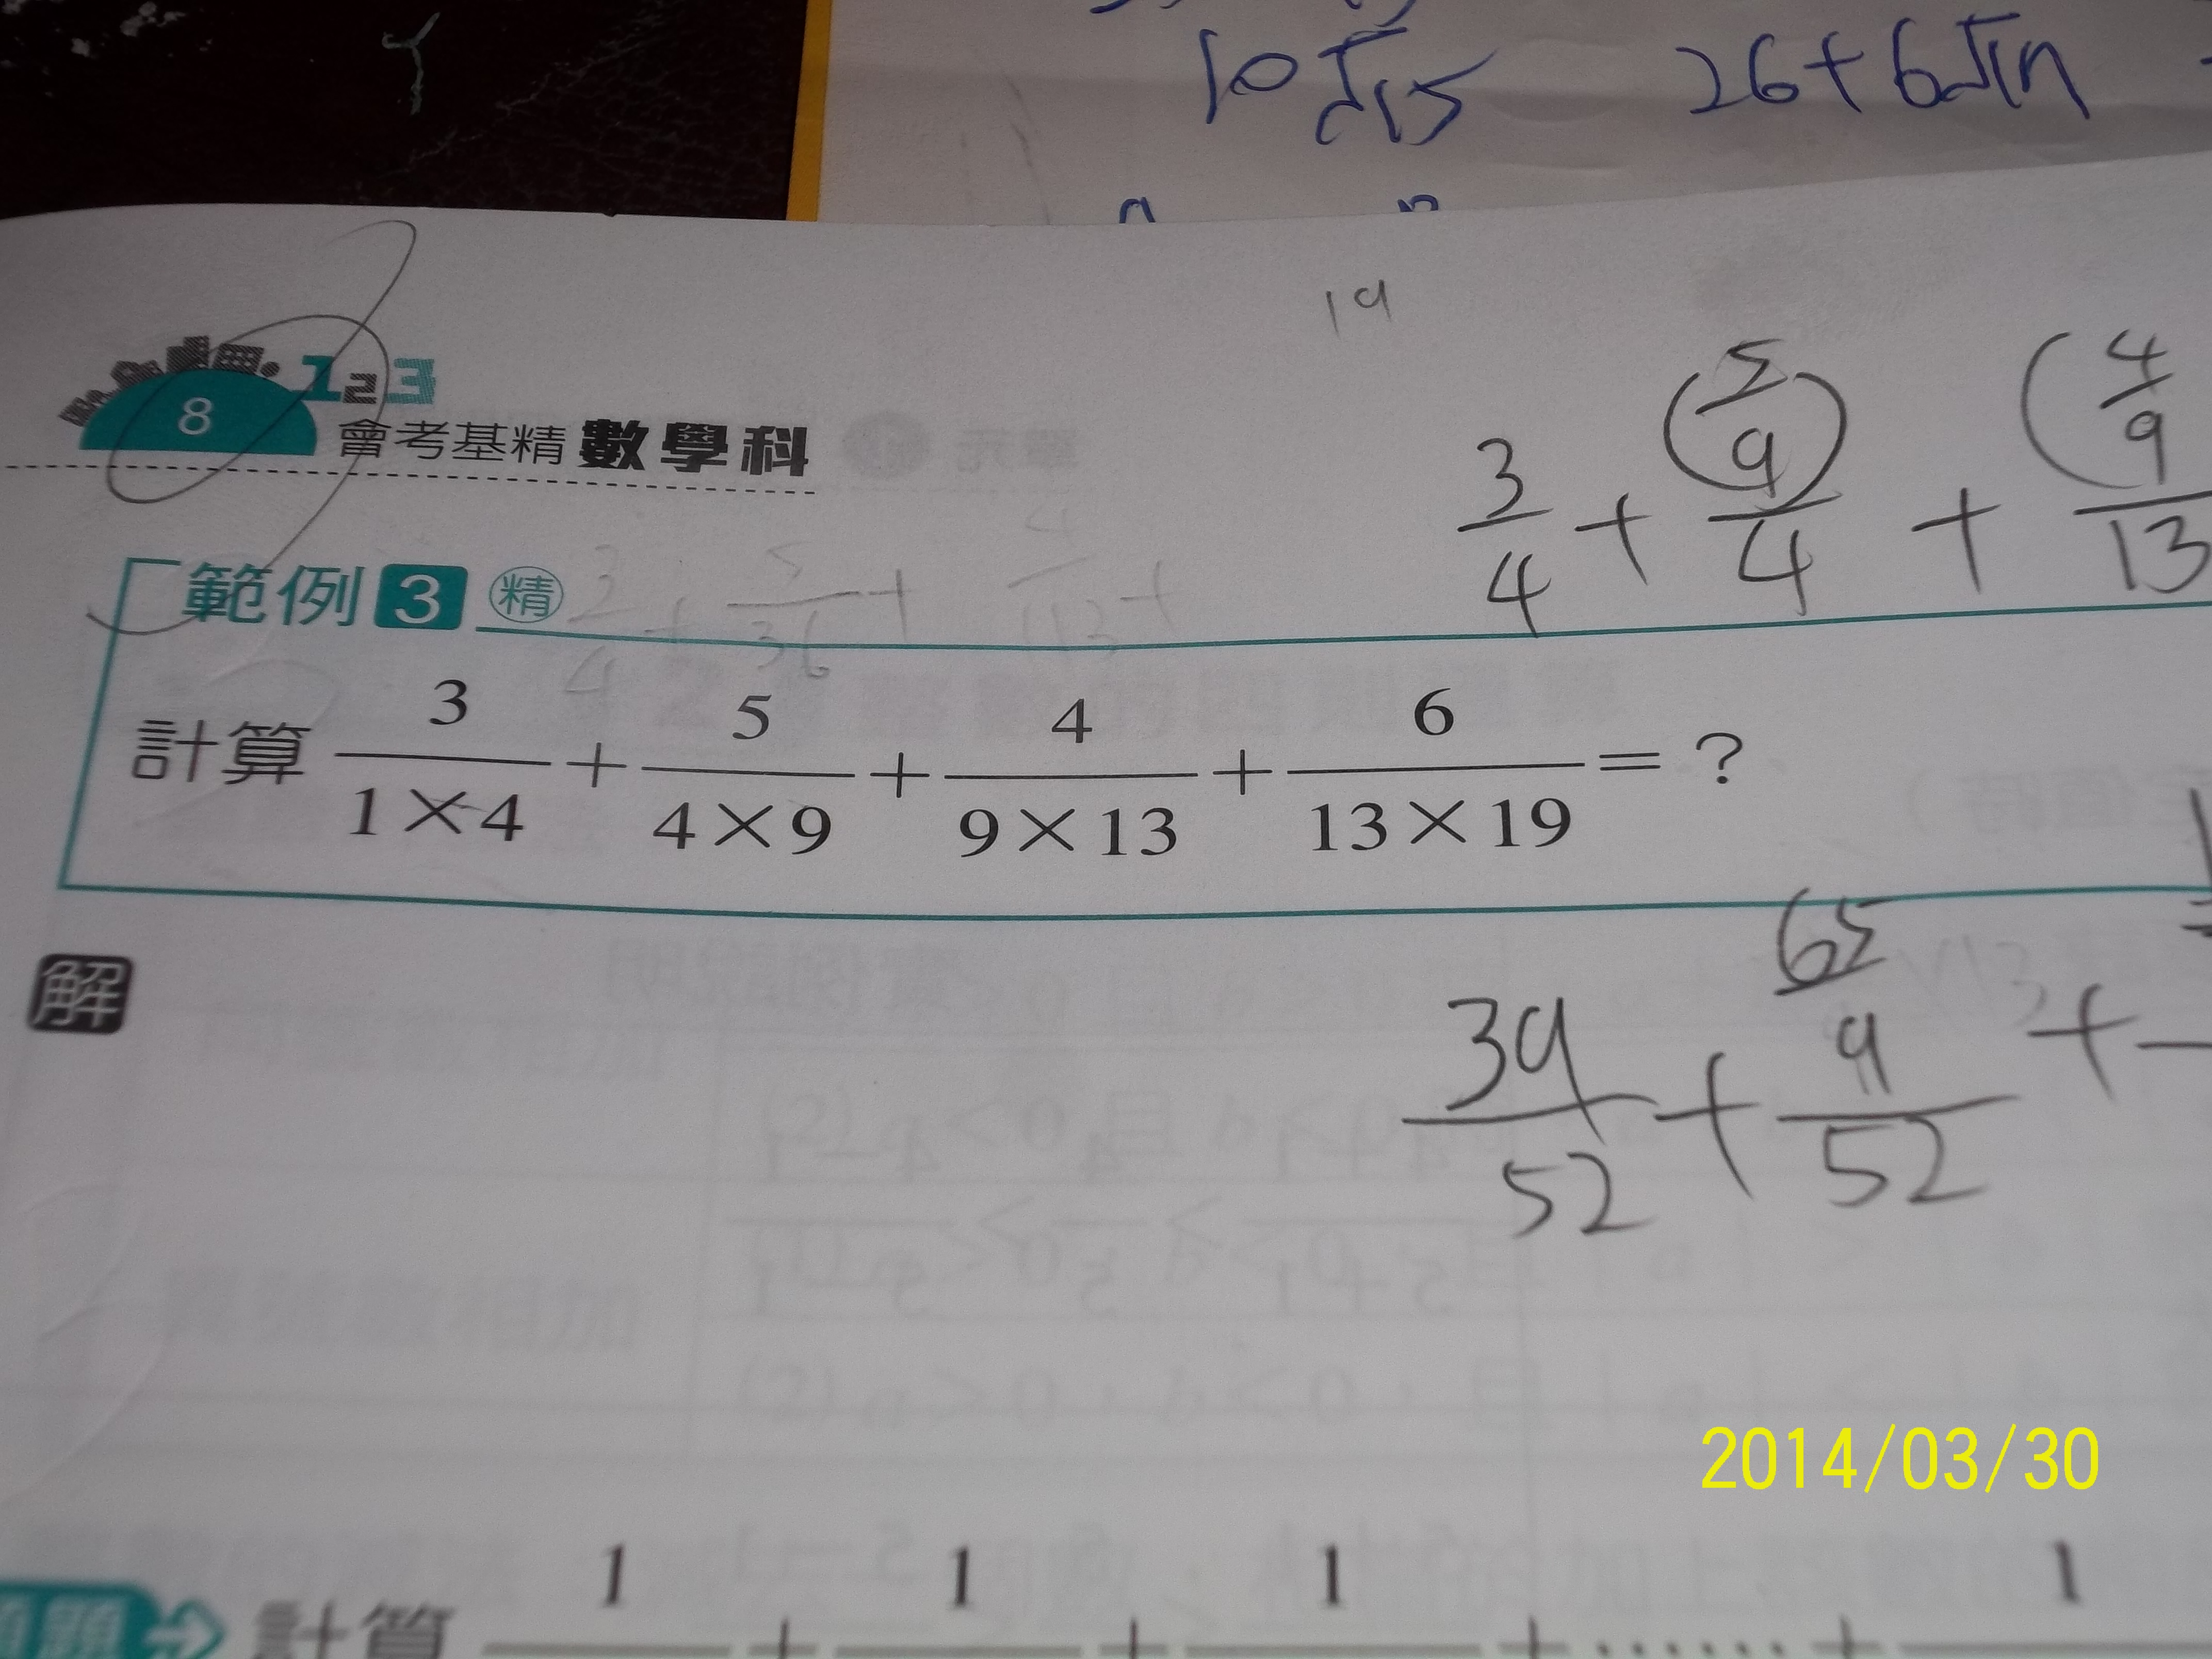 10√15 26+6√
19
8 123
會考基精 數學科
3/4 + (5/9)/4 + (4/9)/13
範例 3 精
計算 3/(1×4) + 5/(4×9) + 4/(9×13) + 6/(13×19) = ?
解
39/52 + (65/9)/52 +
2014/03/30
題 → 計算 1 + 1 + 1 + …… + 1